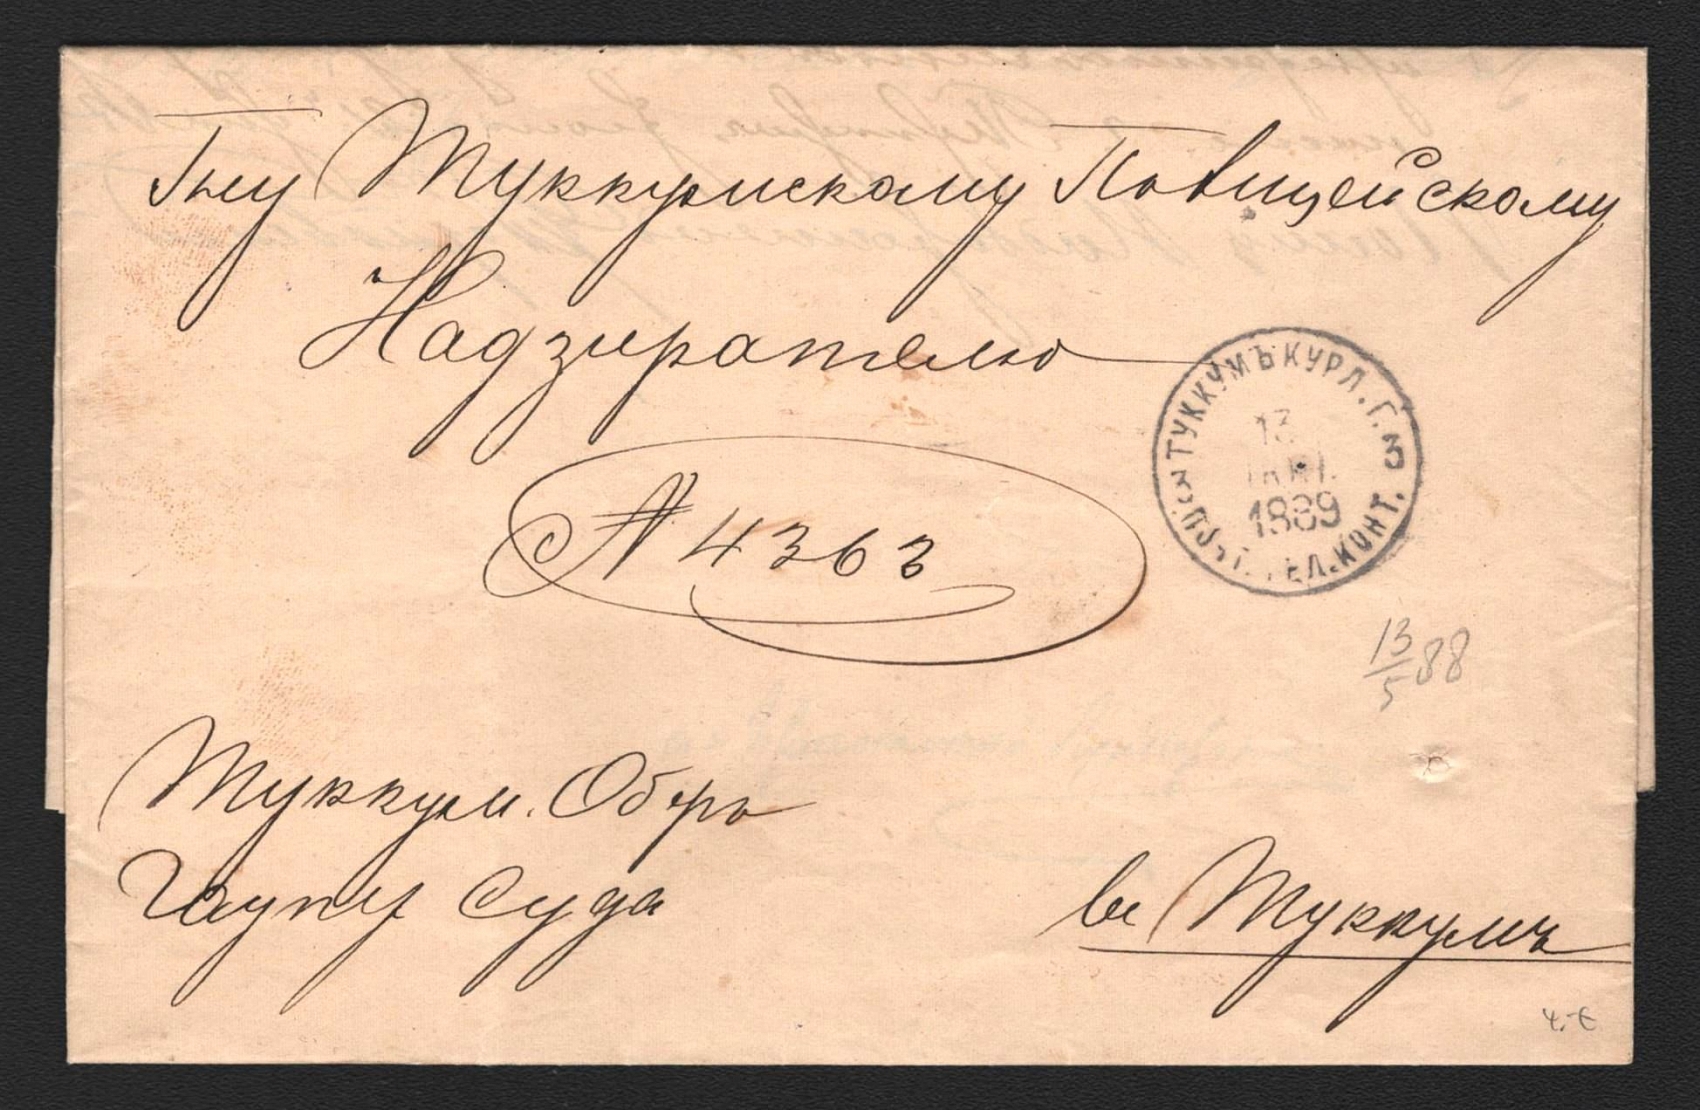 Г-ну Туккумскому Полицейскому
Надзирателю
№ 4363
ТУККУМЪ КУРЛ. Г. 3
13
1889
ПОЧТ. ТЕЛ. КОНТ.
13/5 88
Туккум. Обер
Гаупт Суда
въ Туккумъ
4.-€